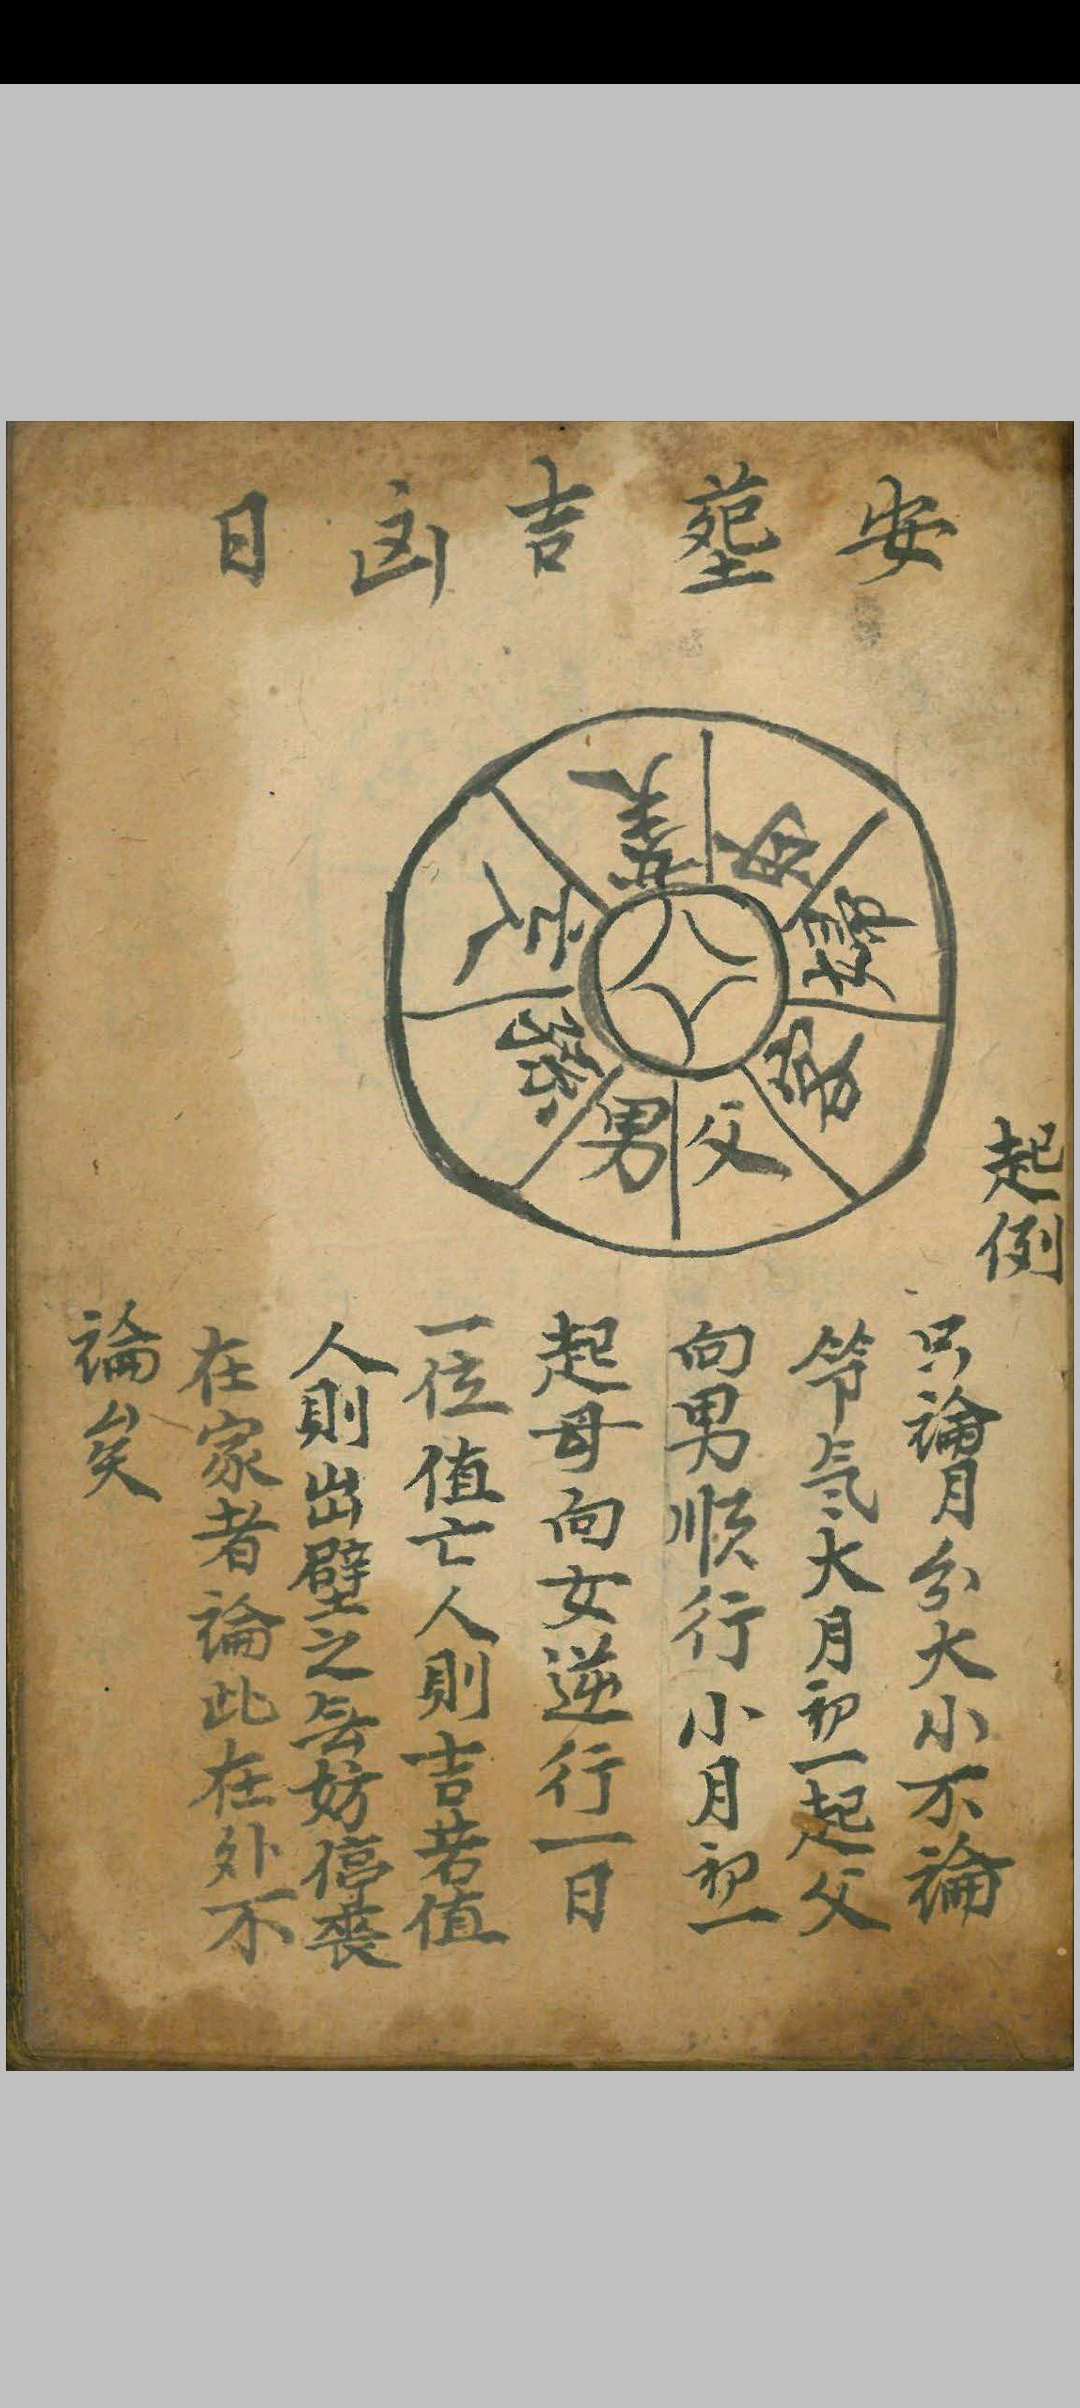 安塟吉凶日
母
婦
父
男
孫
亡人
起例
只論月分大小不論
節氣大月初一起父
向男順行小月初一
起母向女逆行一日
一位值亡人則吉若值
人則出壁之無妨停喪
在家者論此在外不
論矣